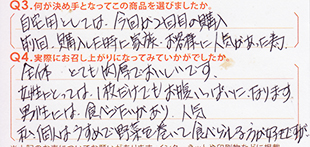 Q3.何が決め手となってこの商品を選びましたか。
自宅用としては、今回が2回目の購入
前回、購入した時に家族・お客様に人気があった為。
Q4.実際にお召し上がりになってみていかがでしたか。
全体 とても肉厚でおいしいです。
女性にとっては、1枚だけでもお腹いっぱいになります。
男性には、食べごたいがあり、人気
私個人はうすめで野菜を巻いて食べられるほうが好きですが